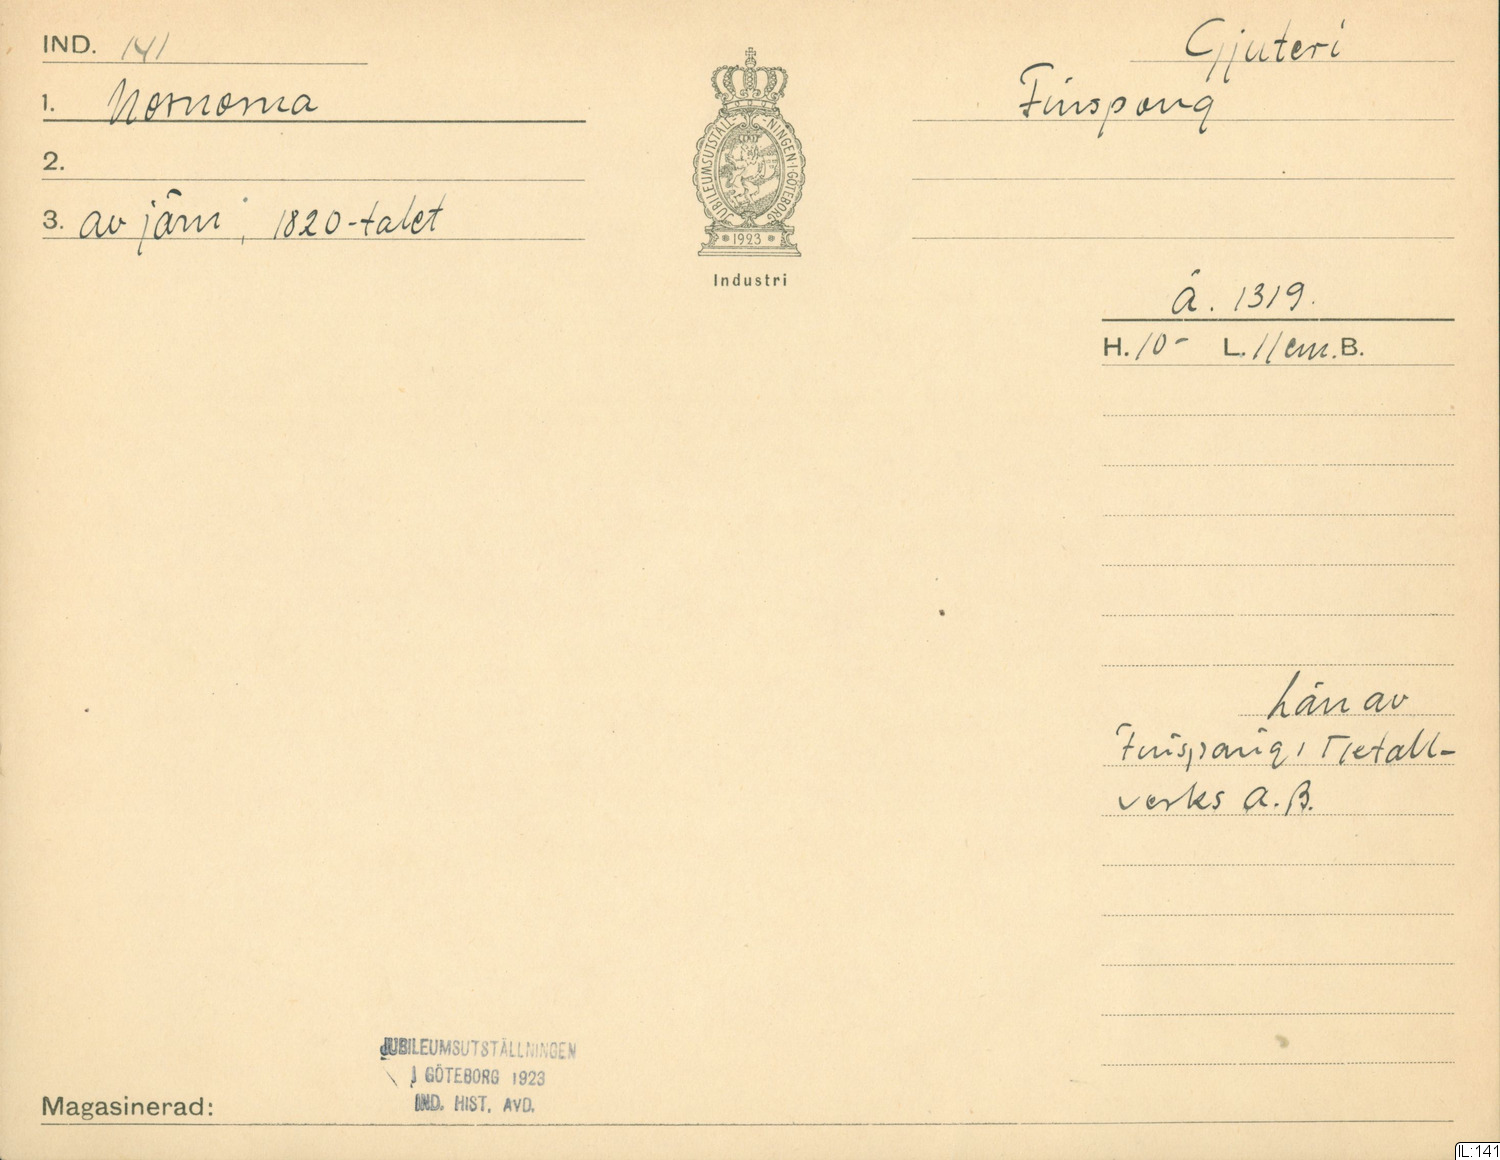 IND. 141
Gjuteri
1. Nornorna
Finspong
2.
3. av järn, 1820-talet
JUBILEUMSUTSTÄLL-NINGEN·I·GÖTEBORG
1923
Industri
Å. 1319.
H. 10- L. 11 cm. B.
Lån av
Finspongs Metall-
verks A.B.
JUBILEUMSUTSTÄLLNINGEN
I GÖTEBORG 1923
IND. HIST. AVD.
Magasinerad:
IL:141